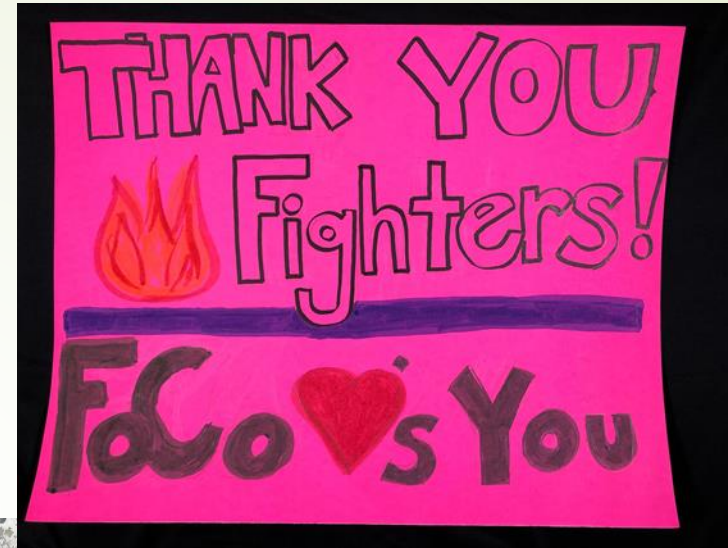 THANK YOU
Fighters!
FoCo ♥'s You